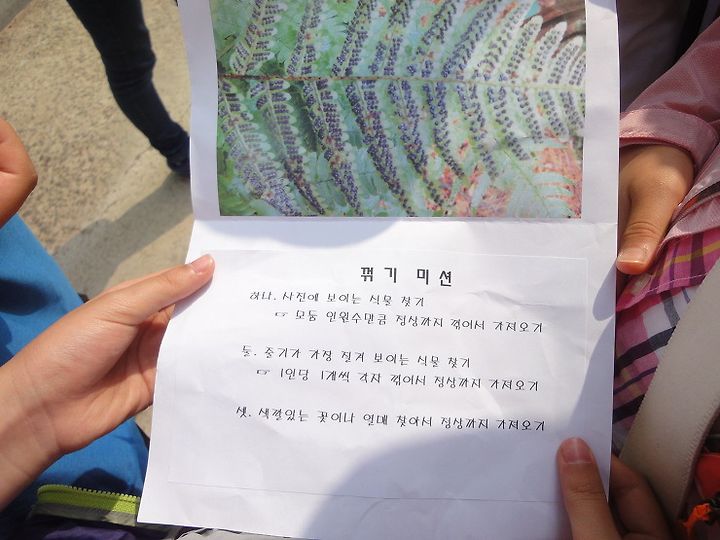 꺾기 미션
하나. 사진에 보이는 식물 찾기
☞ 모둠 인원수만큼 정상까지 꺾어서 가져오기
둘. 줄기가 가장 질겨 보이는 식물 찾기
☞ 1인당 1개씩 각자 꺾어서 정상까지 가져오기
셋. 색깔있는 꽃이나 열매 찾아서 정상까지 가져오기